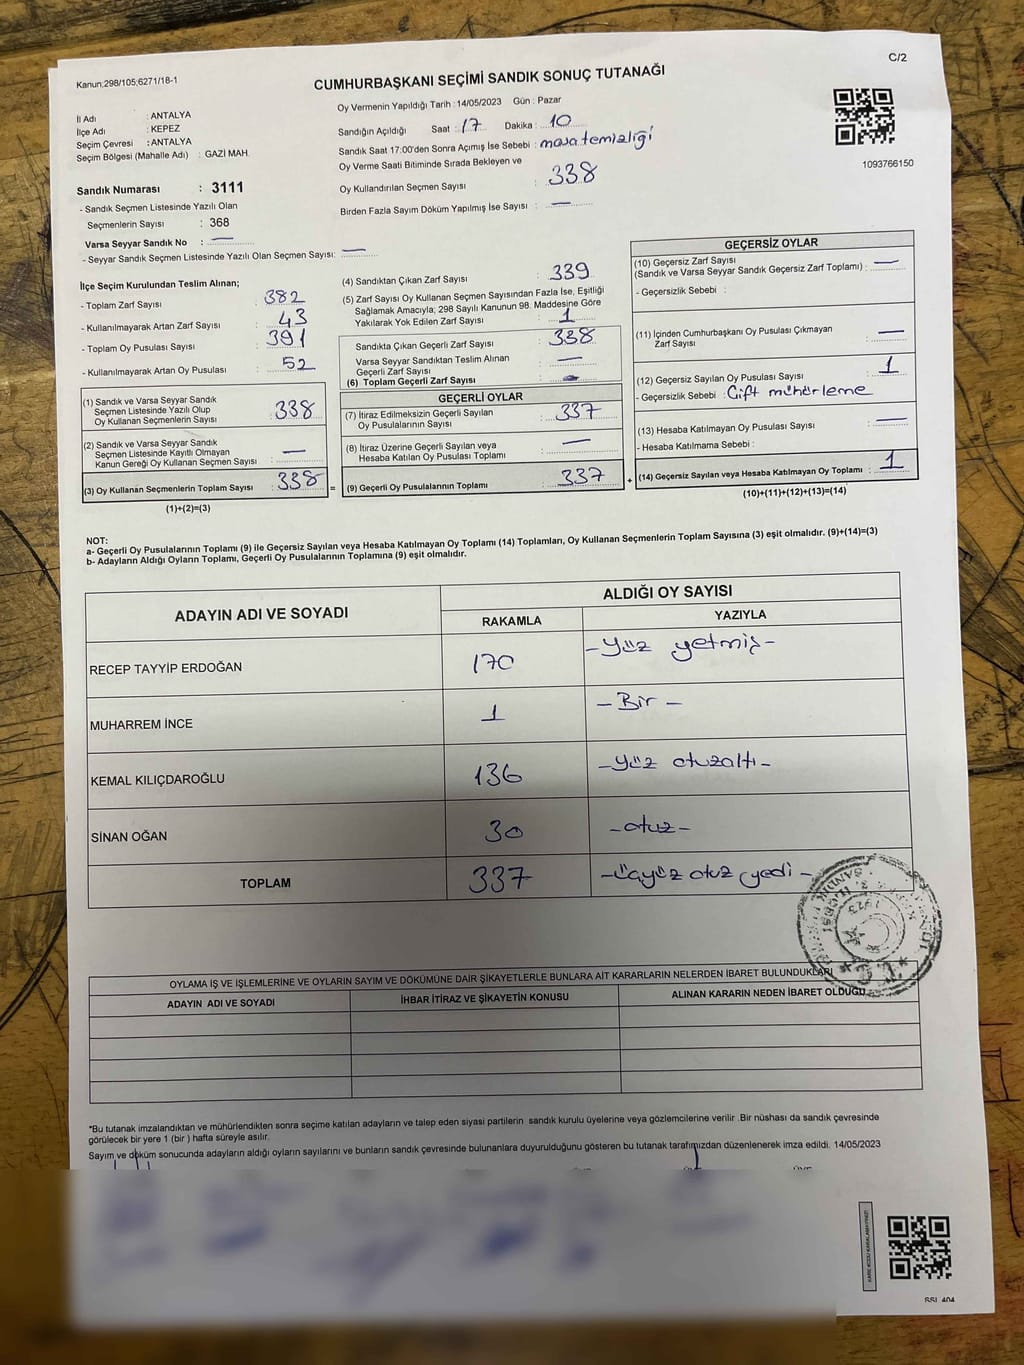 Kanun;298/105;6271/18-1
C/2
CUMHURBAŞKANI SEÇİMİ SANDIK SONUÇ TUTANAĞI
İl Adı : ANTALYA
İlçe Adı : KEPEZ
Seçim Çevresi : ANTALYA
Seçim Bölgesi (Mahalle Adı) : GAZİ MAH.
Oy Vermenin Yapıldığı Tarih : 14/05/2023 Gün : Pazar
Sandığın Açıldığı Saat : 17 Dakika : 10
Sandık Saat 17:00'den Sonra Açımış İse Sebebi : masa temizliği
Oy Verme Saati Bitiminde Sırada Bekleyen ve
Oy Kullandırılan Seçmen Sayısı : 338
Birden Fazla Sayım Döküm Yapılmış İse Sayısı : —
1093766150
Sandık Numarası : 3111
- Sandık Seçmen Listesinde Yazılı Olan
Seçmenlerin Sayısı : 368
Varsa Seyyar Sandık No : —
- Seyyar Sandık Seçmen Listesinde Yazılı Olan Seçmen Sayısı: —
İlçe Seçim Kurulundan Teslim Alınan;
- Toplam Zarf Sayısı : 382
- Kullanılmayarak Artan Zarf Sayısı : 43
- Toplam Oy Pusulası Sayısı : 391
- Kullanılmayarak Artan Oy Pusulası : 52
(1) Sandık ve Varsa Seyyar Sandık
Seçmen Listesinde Yazılı Olup
Oy Kullanan Seçmenlerin Sayısı : 338
(2) Sandık ve Varsa Seyyar Sandık
Seçmen Listesinde Kayıtlı Olmayan
Kanun Gereği Oy Kullanan Seçmen Sayısı : —
(3) Oy Kullanan Seçmenlerin Toplam Sayısı : 338 =
(1)+(2)=(3)
(4) Sandıktan Çıkan Zarf Sayısı : 339
(5) Zarf Sayısı Oy Kullanan Seçmen Sayısından Fazla İse, Eşitliği
Sağlamak Amacıyla; 298 Sayılı Kanunun 98. Maddesine Göre
Yakılarak Yok Edilen Zarf Sayısı : 1
Sandıkta Çıkan Geçerli Zarf Sayısı : 338
Varsa Seyyar Sandıktan Teslim Alınan
Geçerli Zarf Sayısı : —
(6) Toplam Geçerli Zarf Sayısı : —
GEÇERLİ OYLAR
(7) İtiraz Edilmeksizin Geçerli Sayılan
Oy Pusulalarının Sayısı : 337
(8) İtiraz Üzerine Geçerli Sayılan veya
Hesaba Katılan Oy Pusulası Toplamı : —
(9) Geçerli Oy Pusulalarının Toplamı : 337 +
GEÇERSİZ OYLAR
(10) Geçersiz Zarf Sayısı
(Sandık ve Varsa Seyyar Sandık Geçersiz Zarf Toplamı) : —
- Geçersizlik Sebebi :
(11) İçinden Cumhurbaşkanı Oy Pusulası Çıkmayan
Zarf Sayısı : —
(12) Geçersiz Sayılan Oy Pusulası Sayısı : 1
- Geçersizlik Sebebi : Çift mühürleme
(13) Hesaba Katılmayan Oy Pusulası Sayısı : —
- Hesaba Katılmama Sebebi :
(14) Geçersiz Sayılan veya Hesaba Katılmayan Oy Toplamı : 1
(10)+(11)+(12)+(13)=(14)
NOT:
a- Geçerli Oy Pusulalarının Toplamı (9) ile Geçersiz Sayılan veya Hesaba Katılmayan Oy Toplamı (14) Toplamları, Oy Kullanan Seçmenlerin Toplam Sayısına (3) eşit olmalıdır. (9)+(14)=(3)
b- Adayların Aldığı Oyların Toplamı, Geçerli Oy Pusulalarının Toplamına (9) eşit olmalıdır.
ADAYIN ADI VE SOYADI
ALDIĞI OY SAYISI
RAKAMLA YAZIYLA
RECEP TAYYİP ERDOĞAN 170 -Yüz yetmiş-
MUHARREM İNCE 1 - Bir -
KEMAL KILIÇDAROĞLU 136 -Yüz otuzaltı-
SİNAN OĞAN 30 -otuz-
TOPLAM 337 -üçyüz otuz yedi-
OYLAMA İŞ VE İŞLEMLERİNE VE OYLARIN SAYIM VE DÖKÜMÜNE DAİR ŞİKAYETLERLE BUNLARA AİT KARARLARIN NELERDEN İBARET BULUNDUKLARI
ADAYIN ADI VE SOYADI İHBAR İTİRAZ VE ŞİKAYETİN KONUSU ALINAN KARARIN NEDEN İBARET OLDUĞU
*Bu tutanak imzalandıktan ve mühürlendikten sonra seçime katılan adayların ve talep eden siyasi partilerin sandık kurulu üyelerine veya gözlemcilerine verilir .Bir nüshası da sandık çevresinde
görülecek bir yere 1 (bir ) hafta süreyle asılır.
Sayım ve döküm sonucunda adayların aldığı oyların sayılarını ve bunların sandık çevresinde bulunanlara duyurulduğunu gösteren bu tutanak tarafımızdan düzenlenerek imza edildi. 14/05/2023